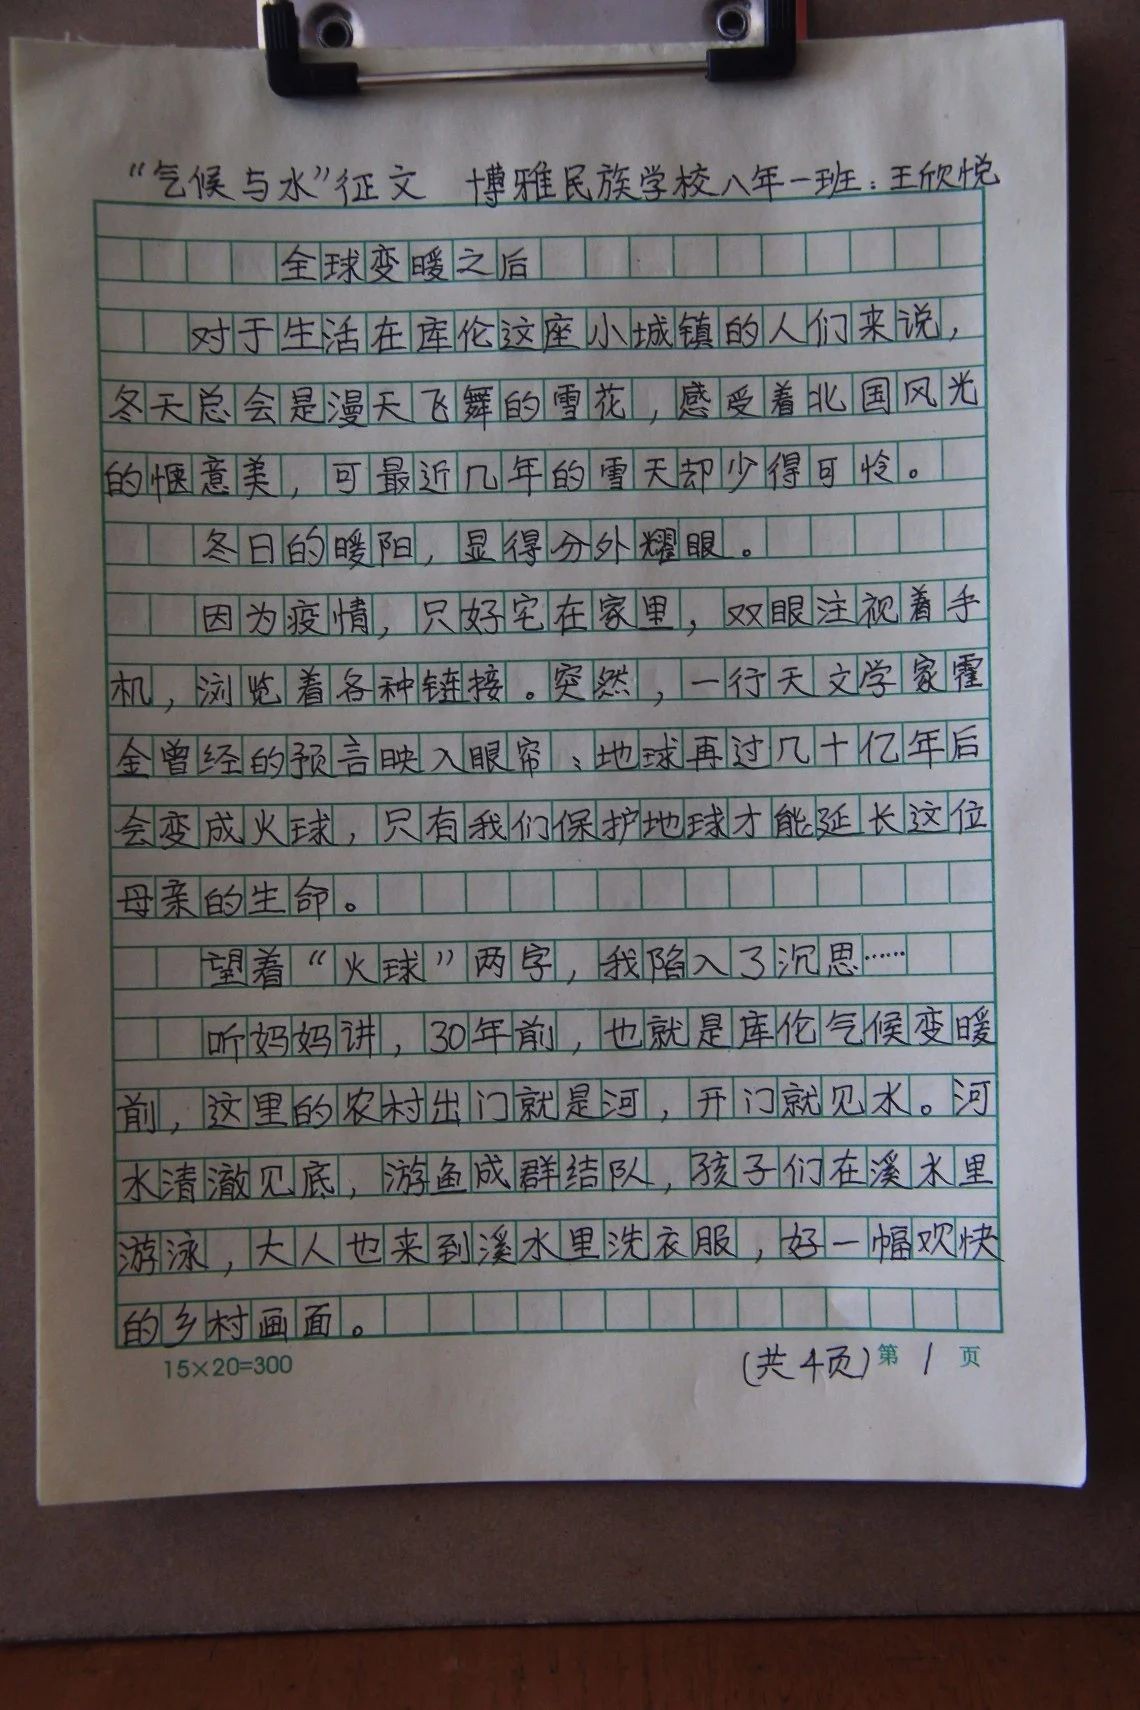 “气候与水”征文 博雅民族学校八年一班：王欣悦
全球变暖之后
对于生活在库伦这座小城镇的人们来说，
冬天总会是漫天飞舞的雪花，感受着北国风光
的惬意美，可最近几年的雪天却少得可怜。
冬日的暖阳，显得分外耀眼。
因为疫情，只好宅在家里，双眼注视着手
机，浏览着各种链接。突然，一行天文学家霍
金曾经的预言映入眼帘：地球再过几十亿年后
会变成火球，只有我们保护地球才能延长这位
母亲的生命。
望着“火球”两字，我陷入了沉思……
听妈妈讲，30年前，也就是库伦气候变暖
前，这里的农村出门就是河，开门就见水。河
水清澈见底，游鱼成群结队，孩子们在溪水里
游泳，大人也来到溪水里洗衣服，好一幅欢快
的乡村画面。
15×20=300 (共4页) 第 1 页